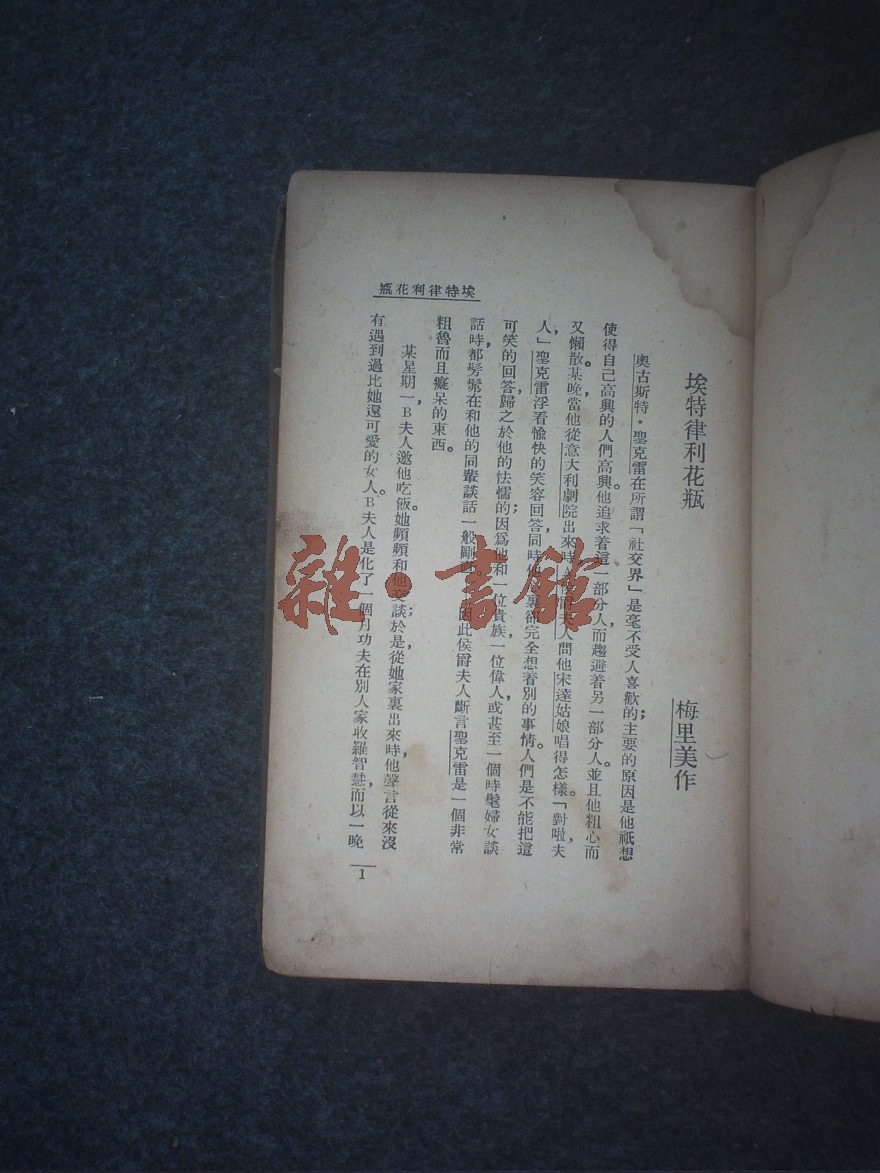 埃特律利花瓶
埃特律利花瓶
梅里美作
奧古斯特·聖克雷在所謂「社交界」是毫不受人喜歡的；主要的原因是他祇想
使得自己高興的人們高興。他追求着這一部分人而趨避着另一部分人。並且他粗心而
又懶散。某晚，當他從意大利劇院出來時，爵夫人問他宋達姑娘唱得怎樣。「對啦，夫
人，」聖克雷浮着愉快的笑容回答，同時他心裏卻完全想着別的事情。人們是不能把這
可笑的回答歸之於他的怯懦的；因爲他和一位貴族，一位偉人，或甚至一個時髦婦女談
話時，都髣髴在和他的同輩談話一般。因此侯爵夫人斷言聖克雷是一個非常
粗魯而且癡呆的東西。
某星期一，B夫人邀他吃飯。她頻頻和他交談；於是，從她家裏出來時，他聲言從來沒
有遇到過比她還可愛的女人。B夫人是化了一個月功夫在別人家收羅智慧，而以一晚
1
雜·書館